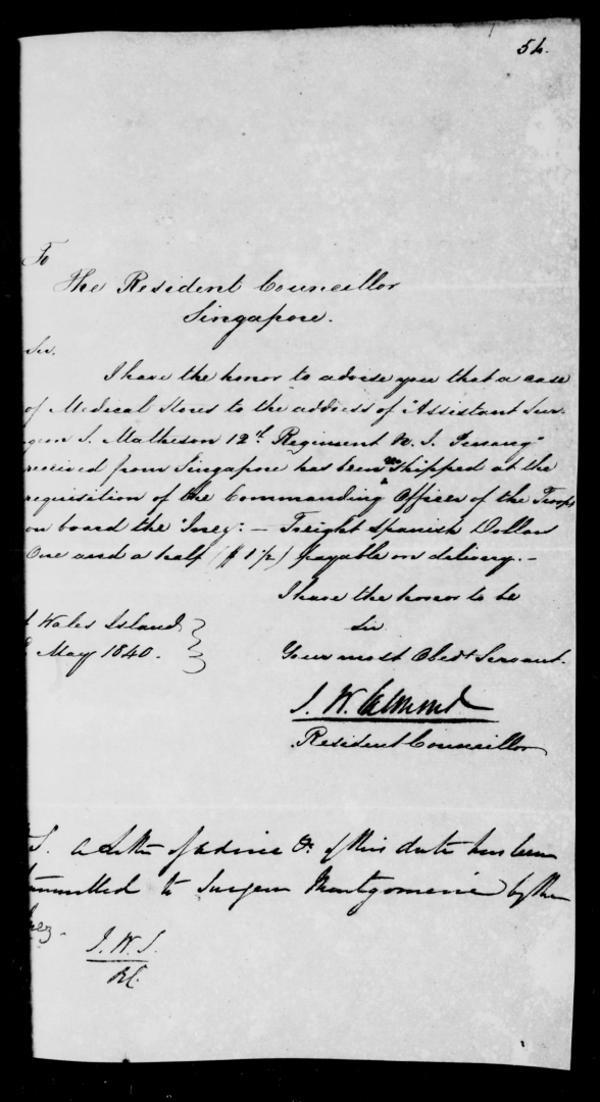 54.
To
The Resident Councillor
Singapore.
Sir.
I have the honor to advise you that a case
of Medical Stores to the address of "Assistant Sur-
geon J. Matheson 12th Regiment N. I. Penang"
received from Singapore has been shipped at the
requisition of the Commanding Officer of the Troops
on board the — Freight Spanish Dollar
One and a half ($ 1 1/2) payable on delivery. –
I have the honor to be
Sir
Wales Island
May 1840.
Your most Obedt Servant.
J. W.
Resident Councillor
S. a Letter of advice &c of this date has been
to Surgeon Montgomerie by the
J. W. S.
R.C.